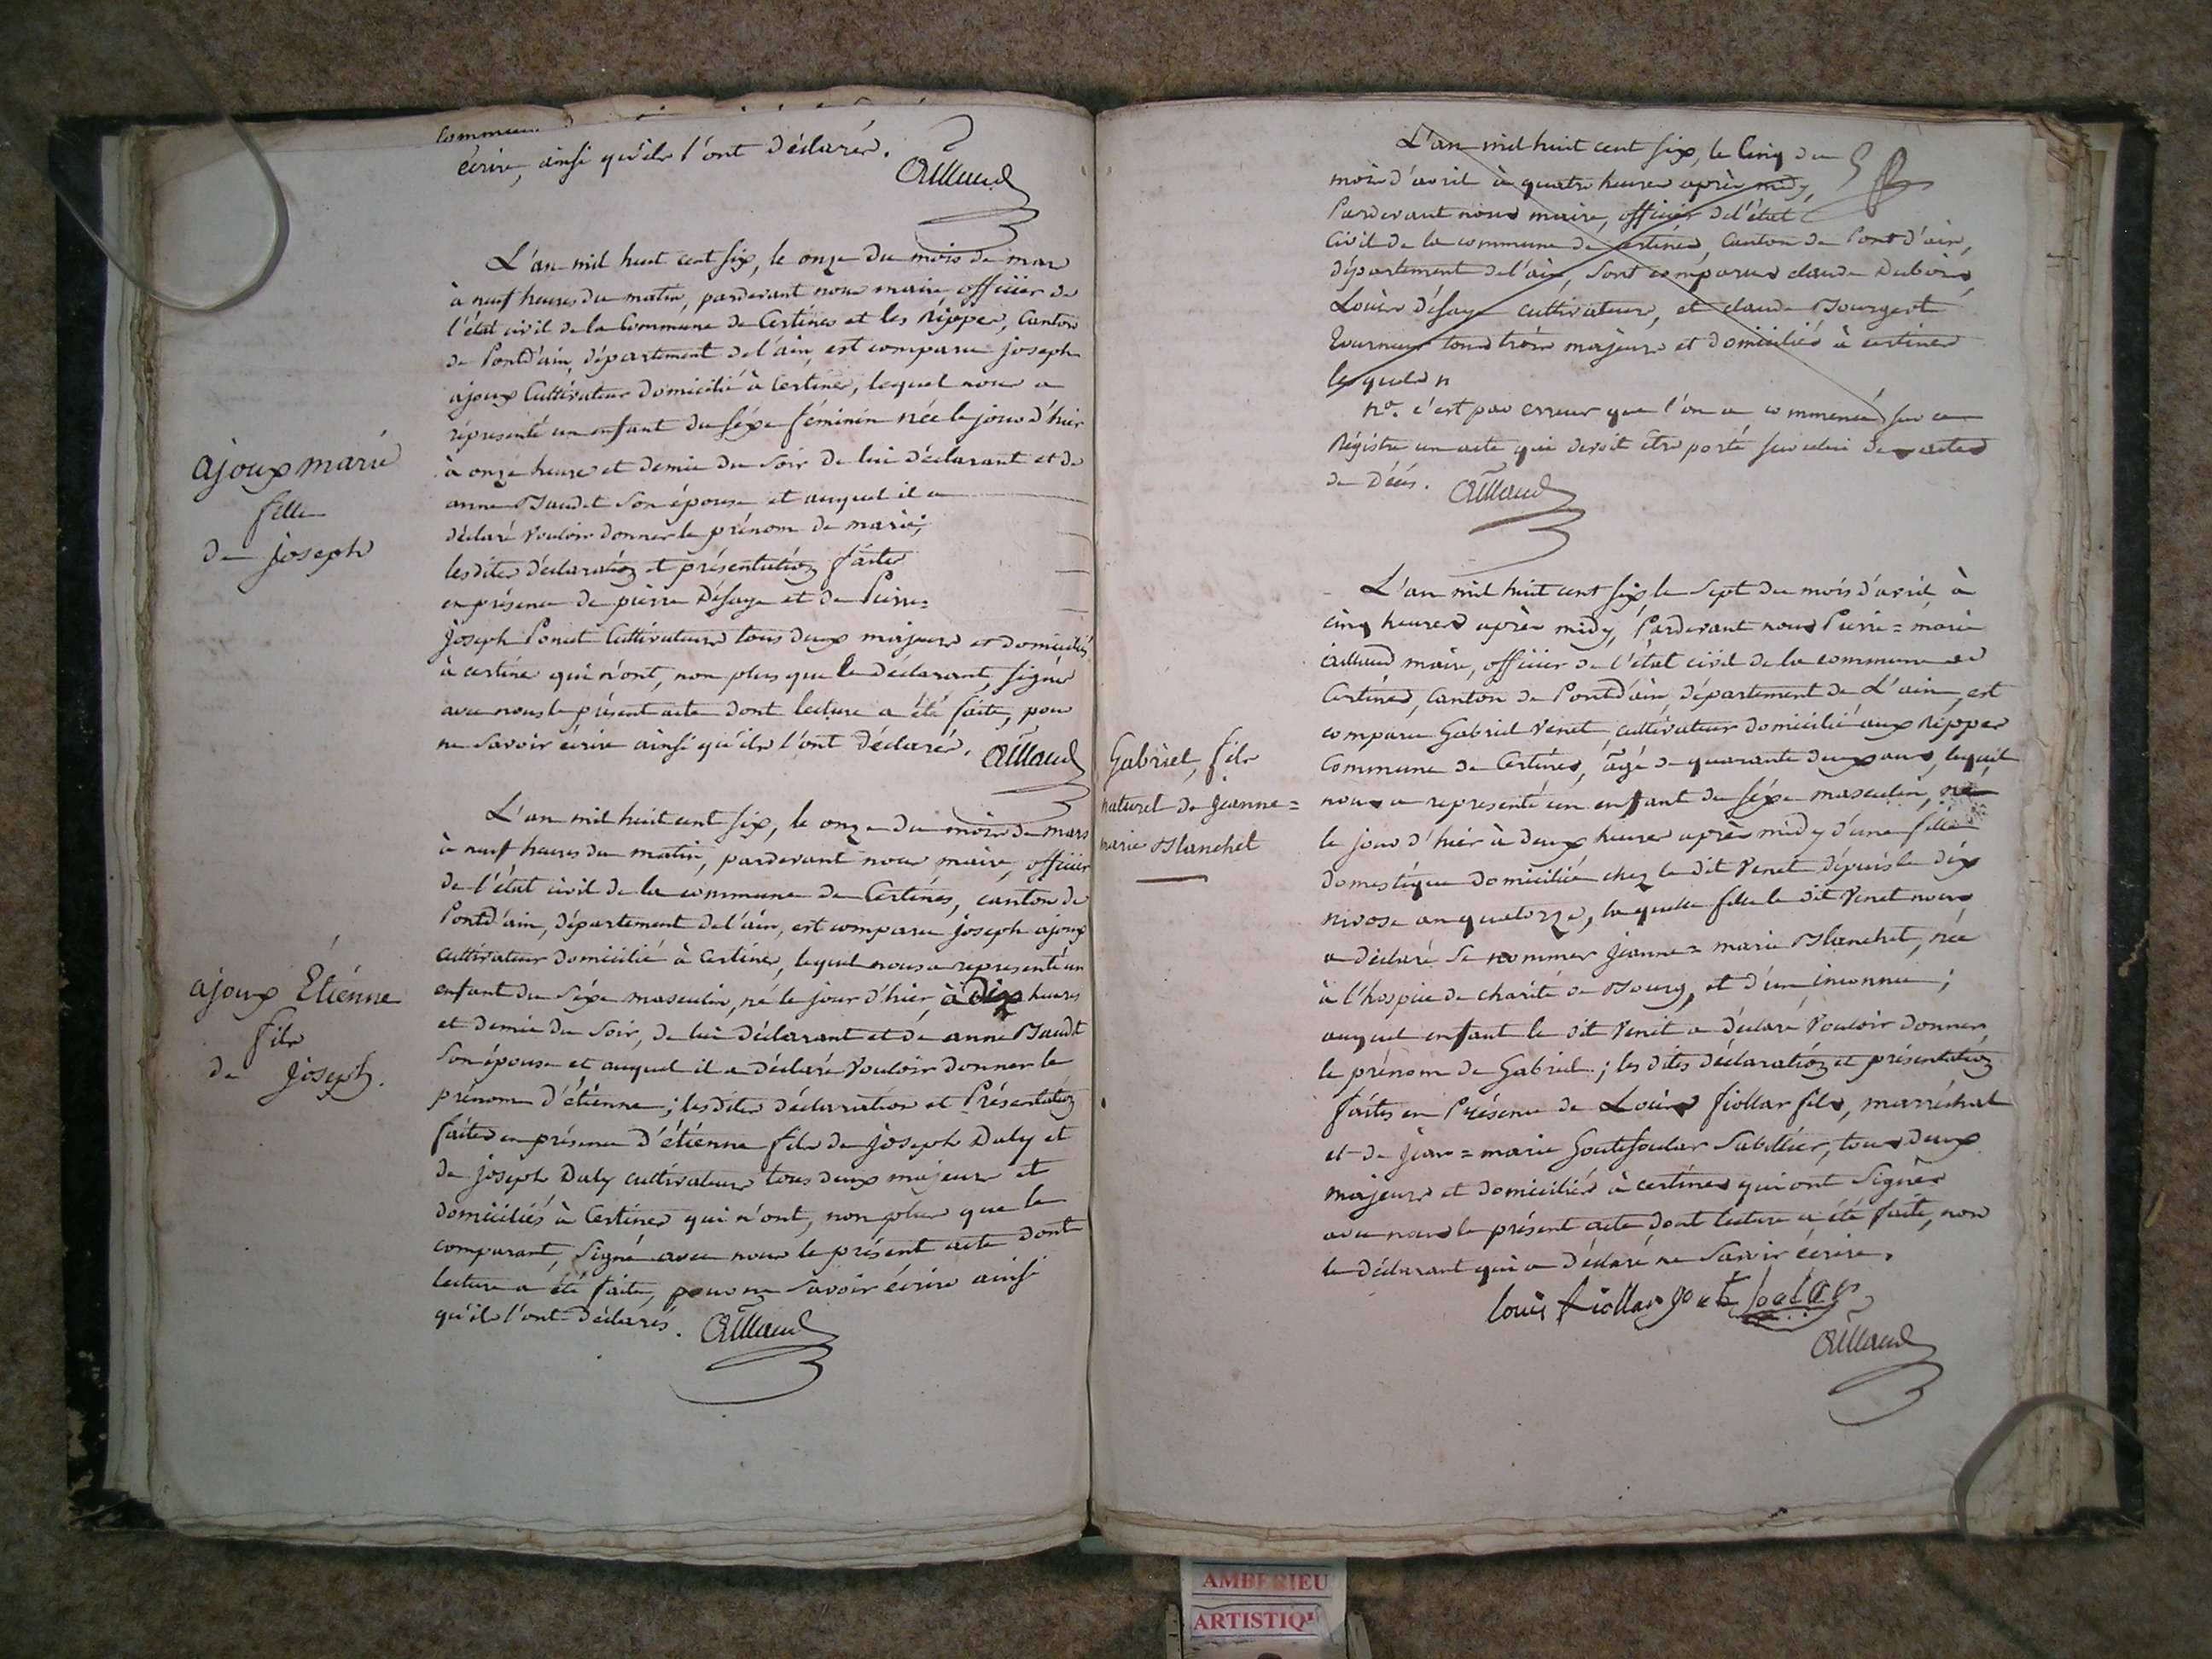 écrire, ainsi qu'ils l'ont déclarés.
Aillaud
L'an mil huit cent six, le onze du mois de mars
à neuf heures du matin, pardevant nous maire officier de
l'état civil de la Commune de Certines et les Rippes, Canton
de Pontd'ain, département de l'ain, est comparu joseph
ajoux Cultivateur domicilié à Certines, lequel nous a
représenté un enfant du séxe féminin née le jour d'hier
à onze heures et demie du soir de lui déclarant et de
anne Baudet son épouse et auquel il a
déclaré vouloir donner le prénom de marie;
lesdites déclaration et présentation faites
en présence de pierre Désaye et de Pierre=
joseph Poncet Cultivateurs tous deux majeurs et domiciliés
à certines qui n'ont, non plus que le déclarant, signé
avec nous le présent acte dont lecture a été faite, pour
ne savoir écrire ainsi qu'ils l'ont déclarés.
Aillaud
ajoux marie
fille
de joseph
L'an mil huit cent six, le onze du mois de mars
à neuf heures du matin, pardevant nous maire, officier
de l'état civil de la commune de Certines, canton de
Pontd'ain, département de l'ain, est comparu joseph ajoux
cultivateur domicilié à Certines, lequel nous a representé un
enfant du séxe masculin, né le jour d'hier, à dix heures
et demie du soir, de lui déclarant et de anne Baudet
son épouse et auquel il a déclaré vouloir donner le
prénom d'étienne; lesdites déclaration et Présentation
faites en présence d'étienne fils de joseph Daly et
de joseph Daly cultivateurs tous deux majeurs et
domiciliés à Certines qui n'ont, non plus que le
comparant, signé avec nous le présent acte dont
lecture a été faite, pour ne savoir écrire ainsi
qu'ils l'ont déclarés.
Aillaud
ajoux Etiénne
fils
de joseph.
L'an mil huit cent six, le cinq du
mois d'avril à quatre heures après midy,
Pardevant nous maire, officier de l'état
civil de la commune de Certines, Canton de Pont d'ain,
département de l'ain, sont comparus claude Dubois,
Louis désaye cultivateurs, et claude Bourgeot
tourneur tous trois majeurs et domiciliés à certines
lesquels n
nª. c'est par erreur que l'on a commencé sur ce
Régistre un acte qui devoit être porté sur celui des actes
de Décès.
Aillaud
L'an mil huit cent six le sept du mois d'avril à
cinq heures après midy, Pardevant nous Pierre=marie
aillaud maire, officier de l'état civil de la commune de
Certines, canton de Pontd'ain, département de L'ain, est
comparu Gabriel Venet cultivateur domicilié aux Rippes
Commune de Certines, âgé de quarante deux ans, lequel
nous a representé un enfant du séxe masculin, né
le jour d'hier à deux heures après midy d'une fille
domestique domiciliée chez le dit Venet dépuis le dix
nivose an quatorze, laquelle fille le dit Venet nous
a déclaré se nommer jeanne=marie Blanchet, née
à l'hospice de charité de Bourg, et d'un inconnu;
auquel enfant le dit Venet a déclaré vouloir donner
le prénom de Gabriel; les dites déclaration et présentation
faites en Présence de Louis fiollar fils, marréchal
et de jean=marie Goutefoular Sabottier, tous deux
majeurs et domiciliés à certines qui ont signés
avec nous le présent acte dont lecture a été faite, non
le déclarant qui a déclaré ne savoir écrire.
louis fiollar
Aillaud
Gabriel, fils
naturel de jeanne=
marie Blanchet
AMBERIEU
ARTISTIQ